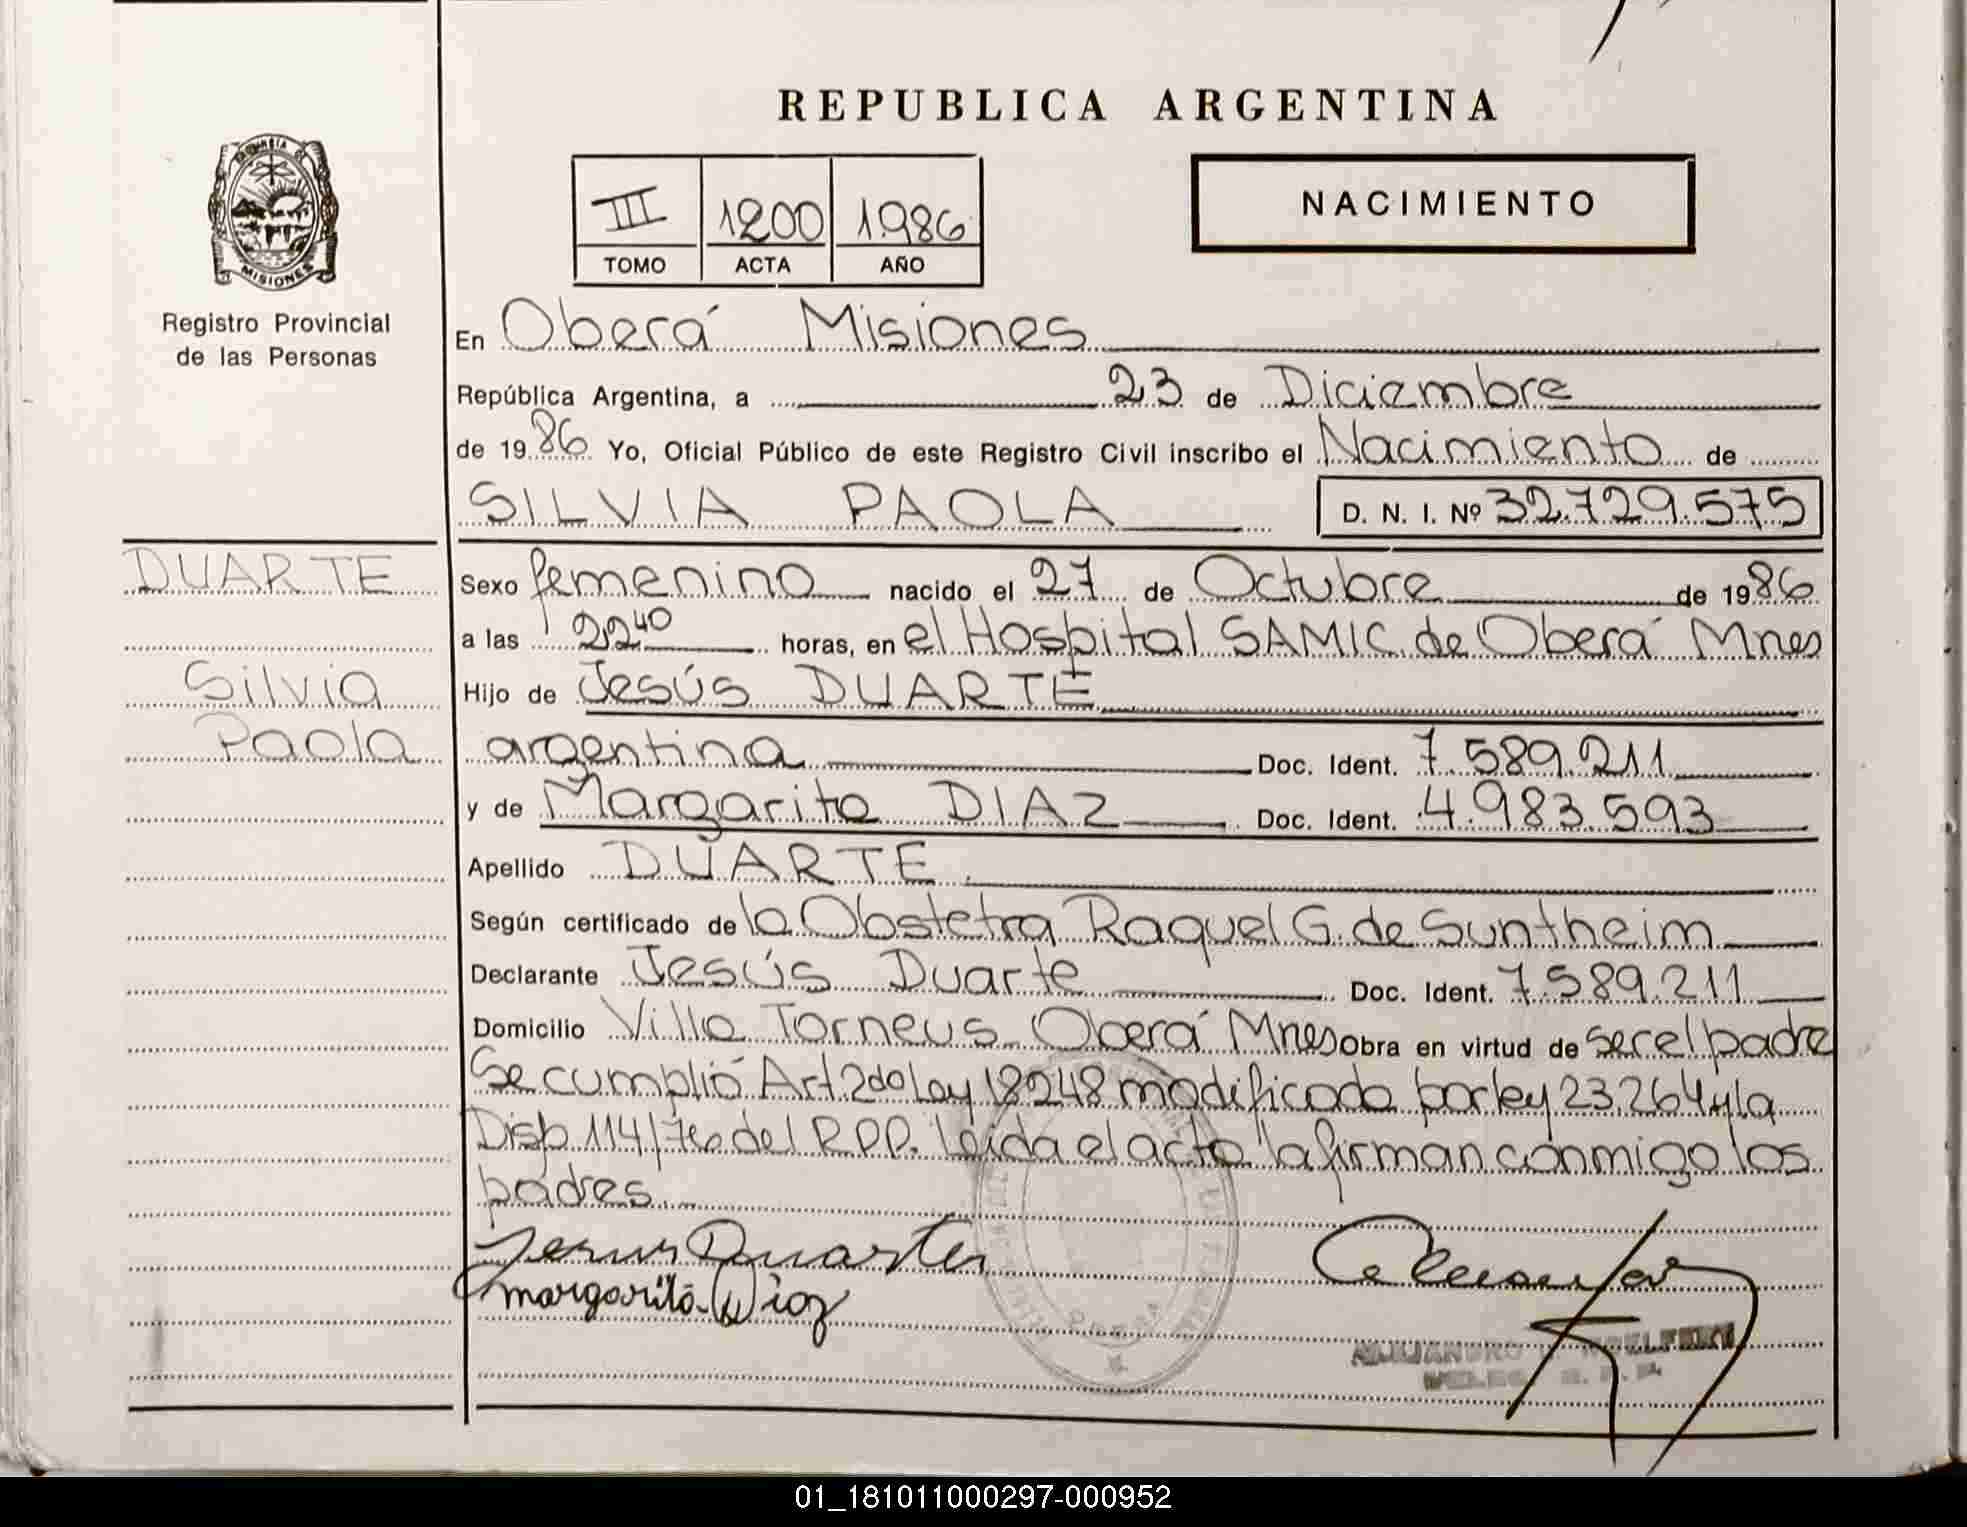 REPUBLICA ARGENTINA
PROVINCIA DE
MISIONES
Registro Provincial
de las Personas
III 1200 1986
TOMO ACTA AÑO
NACIMIENTO
En Oberá Misiones
República Argentina, a 23 de Diciembre
de 1986 Yo, Oficial Público de este Registro Civil inscribo el Nacimiento de
SILVIA PAOLA D. N. I. Nº 32.729.575
DUARTE
Silvia
Paola
Sexo femenino nacido el 27 de Octubre de 1986
a las 22 40 horas, en el Hospital SAMIC de Oberá Mnes
Hijo de Jesús DUARTE
argentina Doc. Ident. 7.589.211
y de Margarita DIAZ Doc. Ident. 4.983.593
Apellido DUARTE
Según certificado de la Obstetra Raquel G. de Suntheim
Declarante Jesús Duarte Doc. Ident. 7.589.211
Domicilio Villa Torneus Oberá Mnes Obra en virtud de ser el padre
Se cumplió Art 2do Ley 18248 modificado por ley 23.264 y la
Disp. 114/76 del R.P.P. Leida el acta la firman conmigo los
padres.
Jesus Duarte
margarita Diaz
01_181011000297-000952